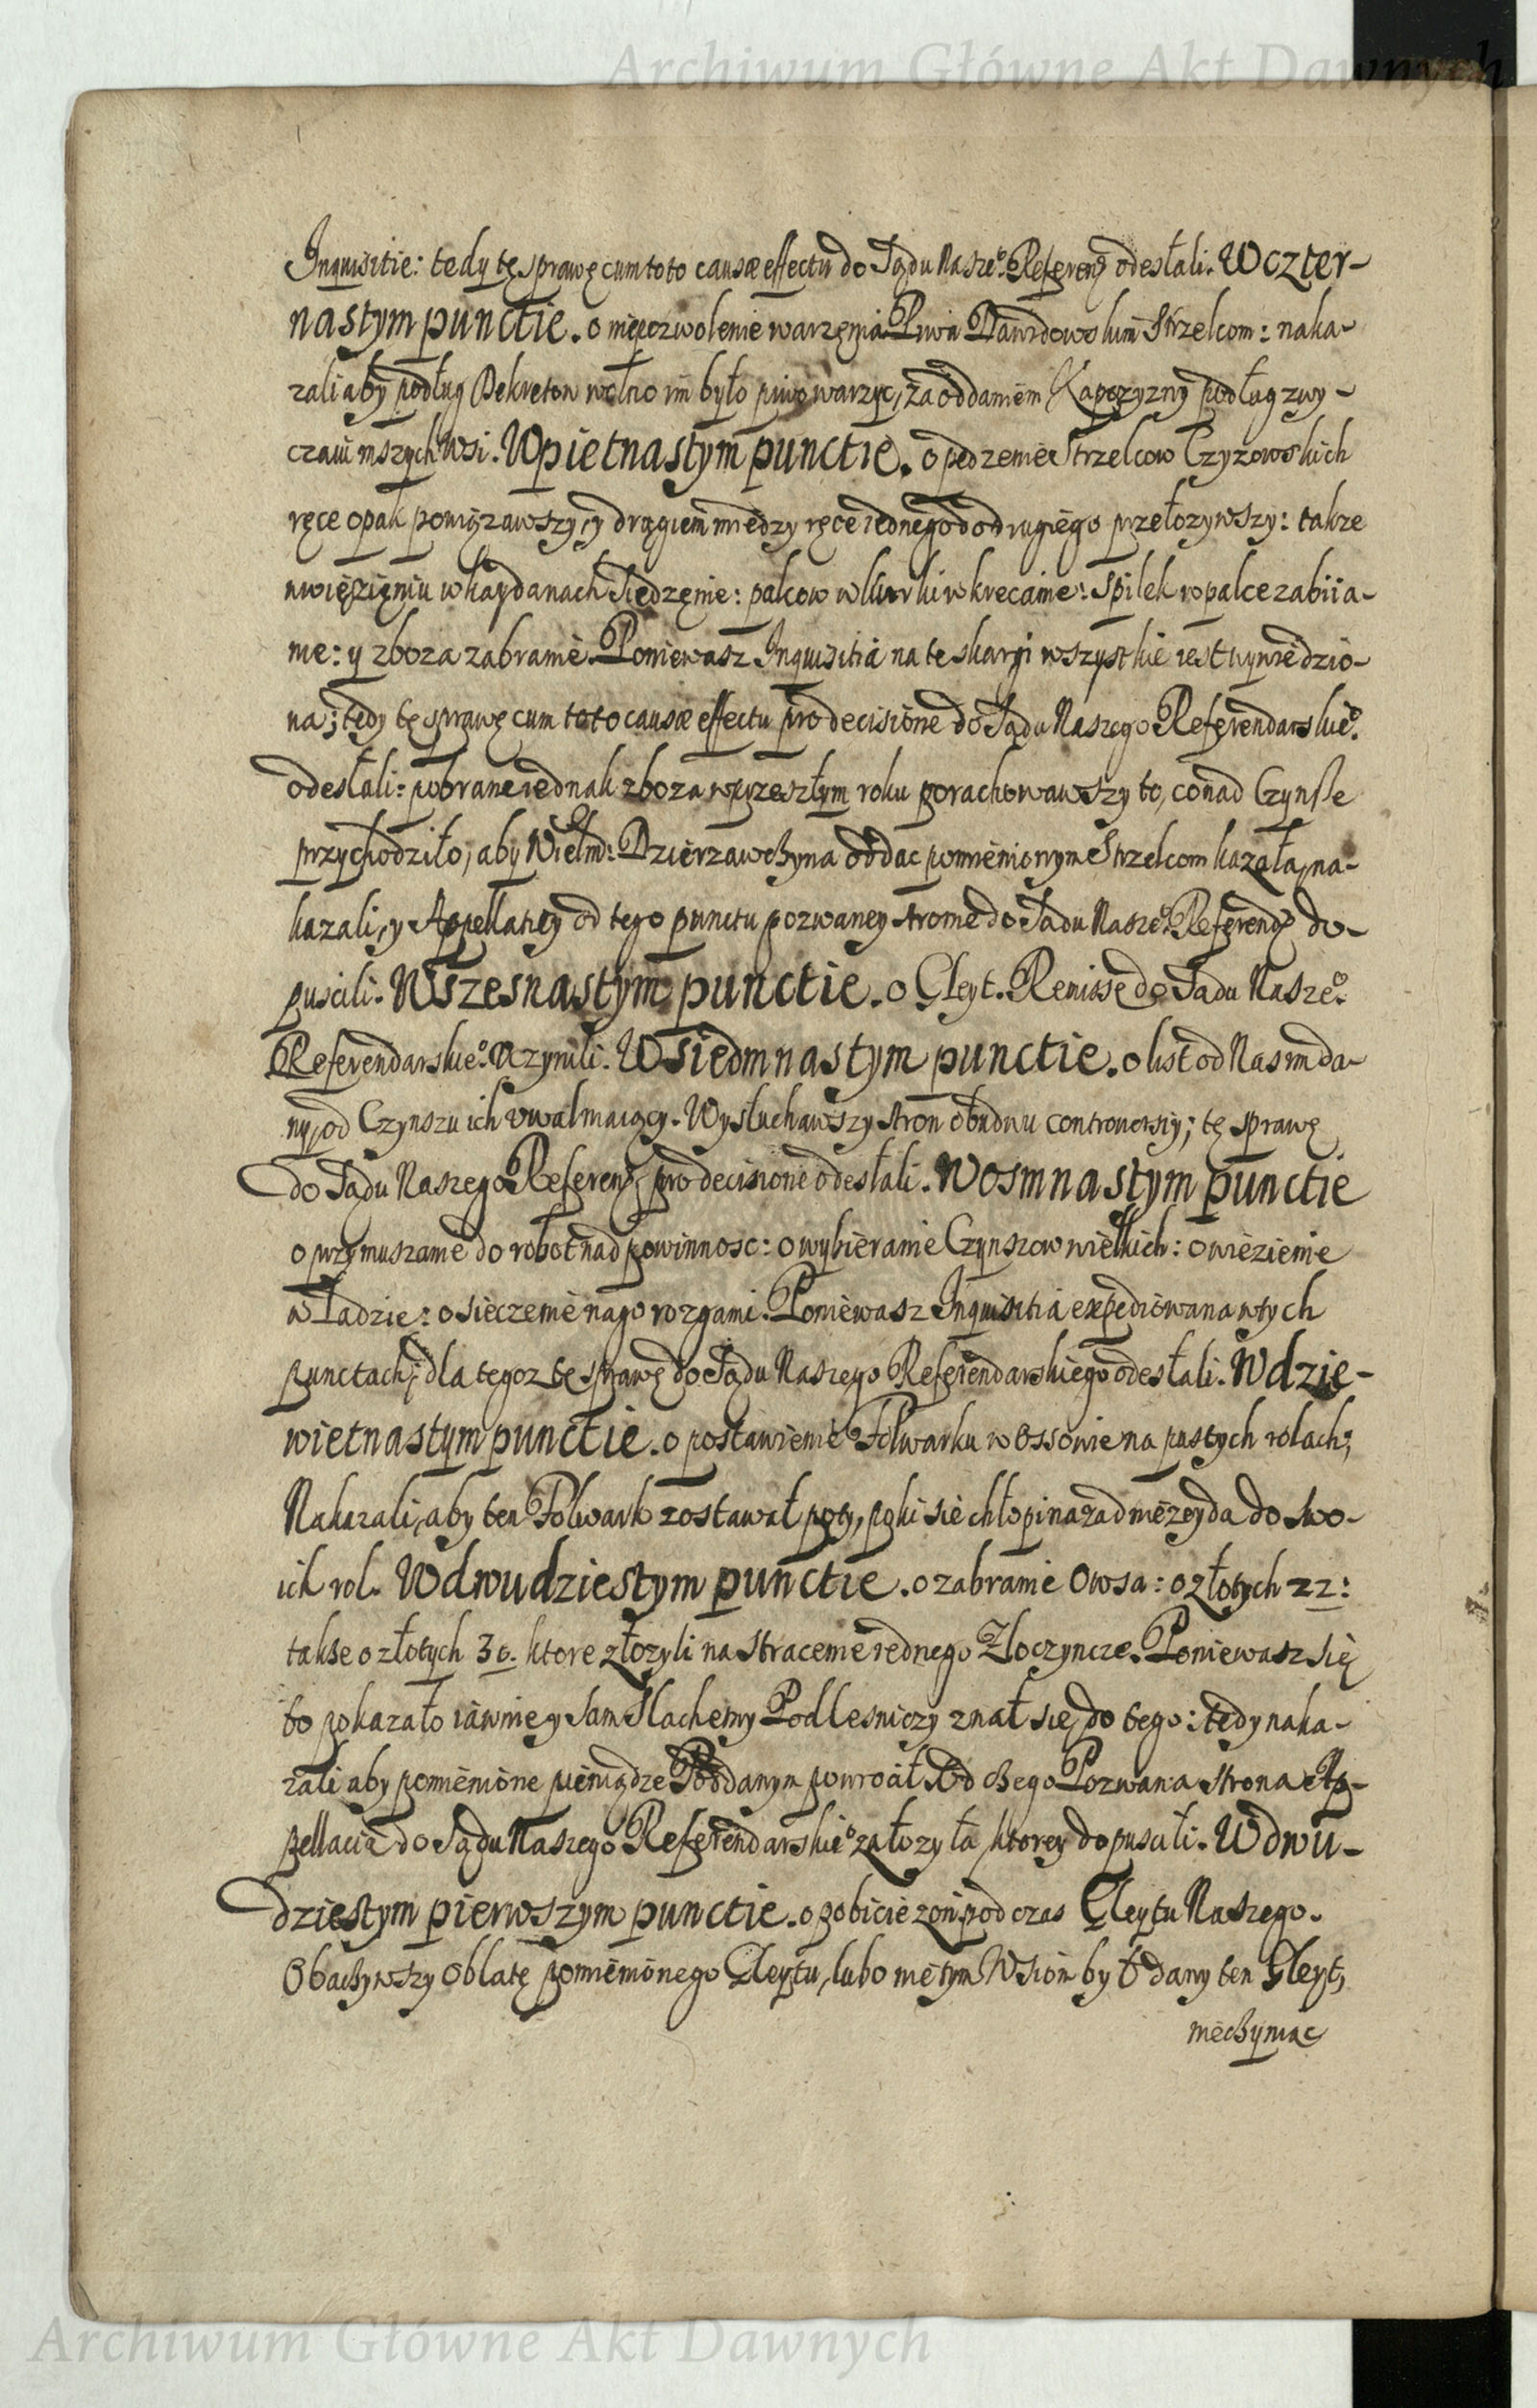 Archiwum Główne Akt Dawnych
Inquisitie: tedy tę sprawę cum toto causæ effectu do Sądu Nasze° Referen: odesłali. W czter-
nastym punctie. o niepozwolenie warzęnia Piwa Dawidowskim Strzelcom: naka-
zali aby podług Dekretow wolno im było piwo warzyc, za oddaniem Kapczyzny podług zwy-
czaiu inszych Wsi. W pietnastym punctie. o pedzenie Strzelcow Czyzowskich
ręce opak powiązawszy, y drągiem między ręce iednego do drugiego przełozywszy: takze
w więzięniu w kaydanach siedzęnie: palcow w kurki wkrecanie: Spilek w palce zabiia-
nie: y zboza zabranie. Poniewasz Inquisitia na te skargi wszystkie iest wywiedzio-
na; tedy tę sprawę cum toto causæ effectu pro decisione do Sądu Naszego Referendarskie°.
odesłali: pobrane iednak zboza w przeszłym roku porachowawszy to, co nad Czynsze
przychodziło, aby Wielm: Dzierzawczyna oddac pomienionym Strzelcom kazała, na-
kazali, y Appellatiey od tego punctu pozwaney stronie do Sądu Nasze° Referend: do-
puscili. W szesnastym punctie. o Gleyt. Remissę do Sądu Nasze°.
Referendarskie°. uczynili. W siedmnastym punctie. o list od Nas im da-
ny, od Czynszu ich uwalniaiący. Wysłuchawszy stron obudwu controuersiy; tę sprawę
do Sądu Naszego Referen: pro decisione odesłali. W osmnastym punctie
o przymuszanie do robot nad powinnosc: o wybieranie Czynszow wielkich: o wiezienie
w Sadzie: o sieczenie nago rozgami. Poniewasz Inquisitia expediowana w tych
punctach; dla tegoz tę sprawę do Sądu Naszego Referendarskiego odesłali. W dzie-
wietnastym punctie. o postawienie Folwarku w Ossowie na pustych rolach;
Nakazali, aby ten Folwark zostawał poty, poki sie chłopi nazad nie zeyda do swo-
ich rol. W dwudziestym punctie. o zabranie Owsa: o złotych 22:
takse o złotych 30. ktore złozyli na stracenie iednego Złoczynce. Poniewasz się
to pokazało iawnie y sam Slachetny Podlesniczy znał sie, do tego: tedy naka-
zali aby pomienione pieniądze Poddanym powrocił. Od czego Pozwana strona Ap-
pellacią do Sądu Naszego Referendarskie° załozyła, ktorey dopuscili. W dwu-
dziestym pierwszym punctie. o pobicie zon pod czas Gleytu Naszego.
Obaczywszy Oblatę pomienionego Gleytu, lubo nie tym Wsiom był dany ten Gleyt,
nieczyniąc
Archiwum Główne Akt Dawnych